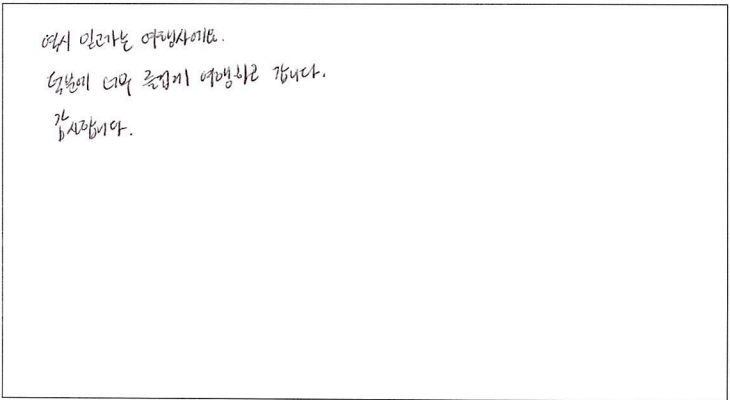 역시 믿고가는 여행사에요.
덕분에 너무 즐겁게 여행하고 갑니다.
감사합니다.